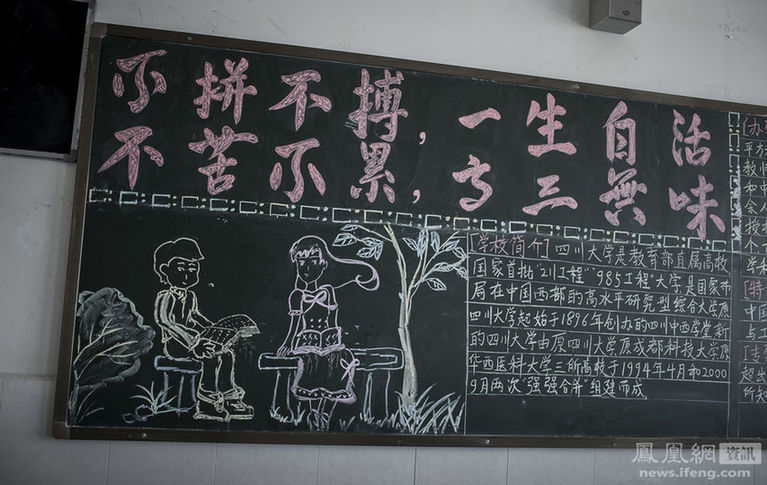 不拼不搏,一生白活
不苦不累,高三無味
[学校简介] 四川大学是教育部直属高校
国家首批"211工程""985工程"大学是国家布
局在中国西部的高水平研究型综合大学原
四川大学起始于1896年创办的四川中西学堂新
的四川大学由原四川大学原成都科技大学原
华西医科大学三所高校于1994年4月和2000
9月两次"强强合并"组建而成
[办
平方
教师
和中
余人
学科
[特
中国
与工
超出
所知
鳳凰網 資訊
news.ifeng.com